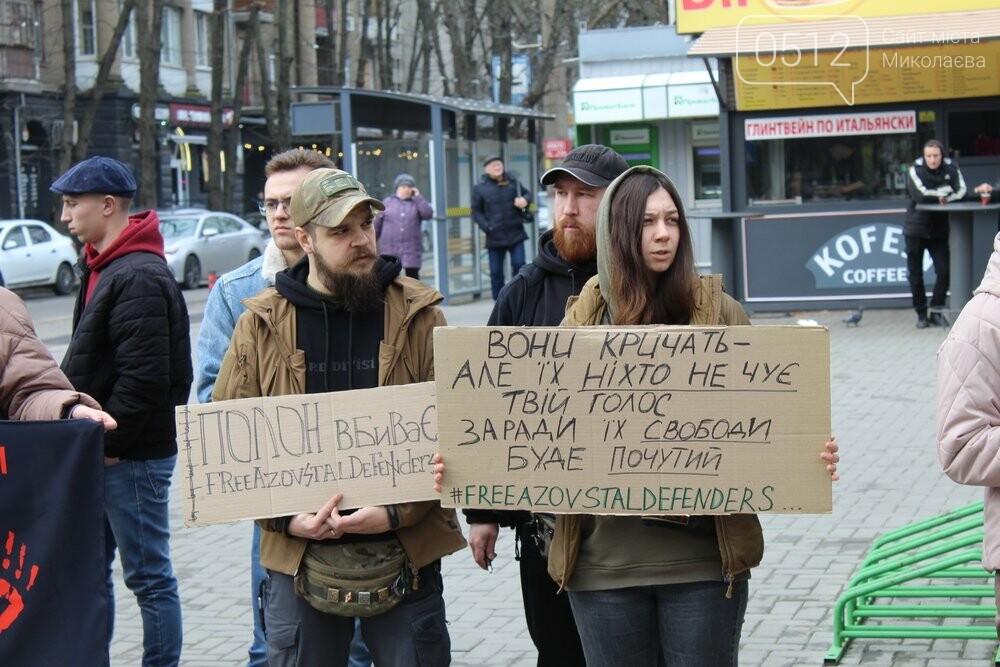 0512
Сайт міста
Миколаєва
ГЛИНТВЕЙН ПО ИТАЛЬЯНСКИ
COFFEE
ПОЛОН ВБИВАЄ
#FREEAZOVSTALDEFENDERS
ВОНИ КРИЧАТЬ-
АЛЕ ЇХ НІХТО НЕ ЧУЄ
ТВІЙ ГОЛОС
ЗАРАДИ ЇХ СВОБОДИ
БУДЕ ПОЧУТИЙ
#FREEAZOVSTALDEFENDERS...